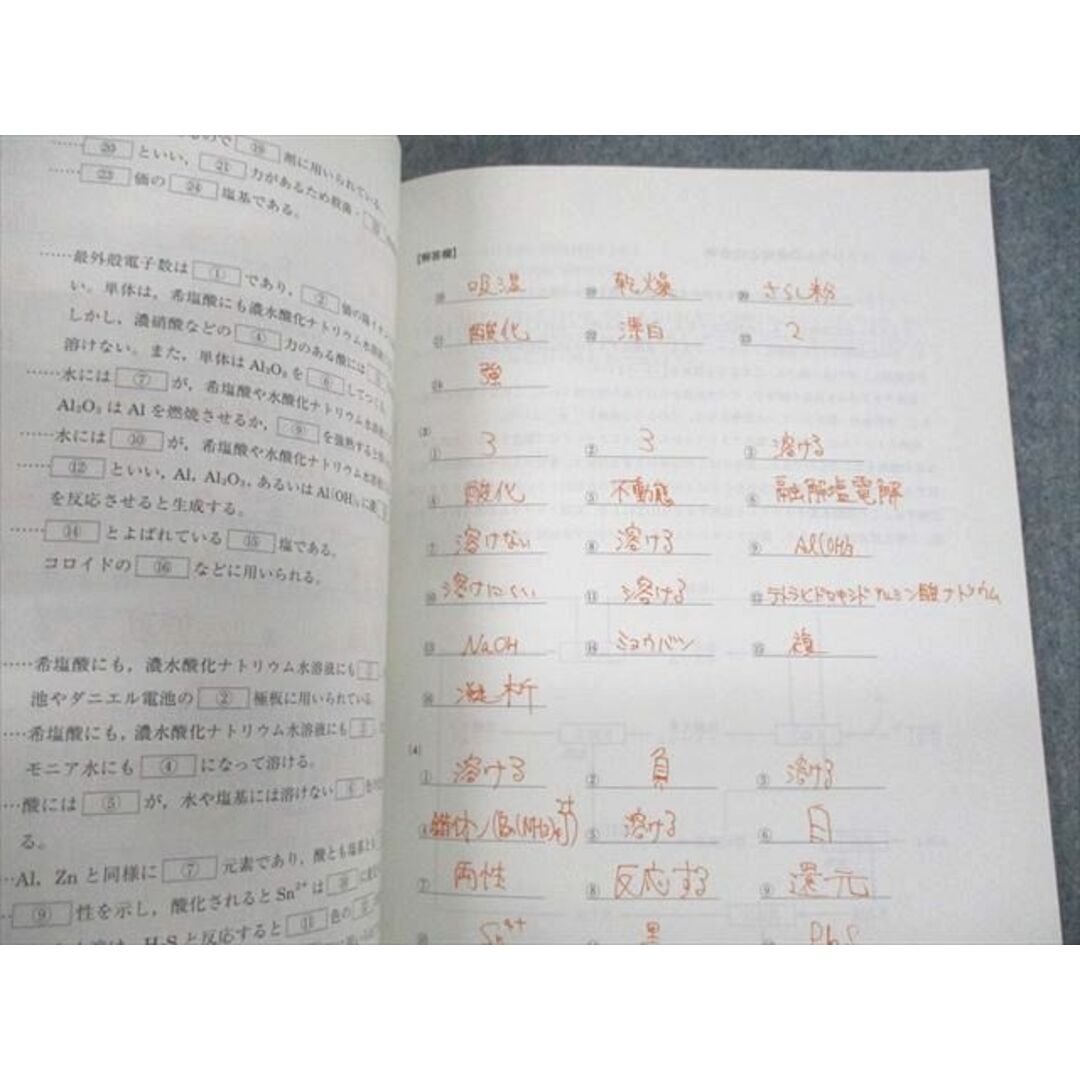 ので ⑲ 剤に用いられている。
⑳ といい， ㉑ 力があるため殺菌・
㉓ 価の ㉔ 塩基である。
……最外殻電子数は ① であり， ② 価の陽イオン
い。単体は，希塩酸にも濃水酸化ナトリウム水溶液に
しかし，濃硝酸などの ④ 力のある酸には
溶けない。また，単体は Al₂O₃ を ⑥ してつくる
……水には ⑦ が，希塩酸や水酸化ナトリウム水溶液
Al₂O₃ は Al を燃焼させるか， ⑨ を強熱すると
……水には ⑩ が，希塩酸や水酸化ナトリウム水溶液
…… ⑫ といい，Al，Al₂O₃，あるいは Al(OH)₃ に
を反応させると生成する。
…… ⑭ とよばれている ⑮ 塩である。
コロイドの ⑯ などに用いられる。
……希塩酸にも，濃水酸化ナトリウム水溶液にも ①
池やダニエル電池の ② 極板に用いられている
……希塩酸にも，濃水酸化ナトリウム水溶液にも ③
モニア水にも ④ になって溶ける。
…酸には ⑤ が，水や塩基には溶けない ⑥ 色
る。
…Al，Zn と同様に ⑦ 元素であり，酸とも塩基とも
… ⑨ 性を示し，酸化されると Sn²⁺ は ⑩
H₂S と反応すると ⑪ 色の
[解答欄]
⑱ 吸湿 ⑲ 乾燥 ⑳ さらし粉
㉑ 酸化 ㉒ 漂白 ㉓ 2
㉔ 強
(3)
① 3 ② 3 ③ 溶ける
④ 酸化 ⑤ 不動態 ⑥ 融解塩電解
⑦ 溶けない ⑧ 溶ける ⑨ Al(OH)₃
⑩ 溶けにくい ⑪ 溶ける ⑫ テトラヒドロキシドアルミン酸ナトリウム
⑬ NaOH ⑭ ミョウバン ⑮ 複
⑯ 凝析
(4)
① 溶ける ② 負 ③ 溶ける
④ 錯イオン ⑤ 溶ける ⑥ 白
⑦ 両性 ⑧ 反応する ⑨ 還元
Sn⁴⁺ 黒 PbS